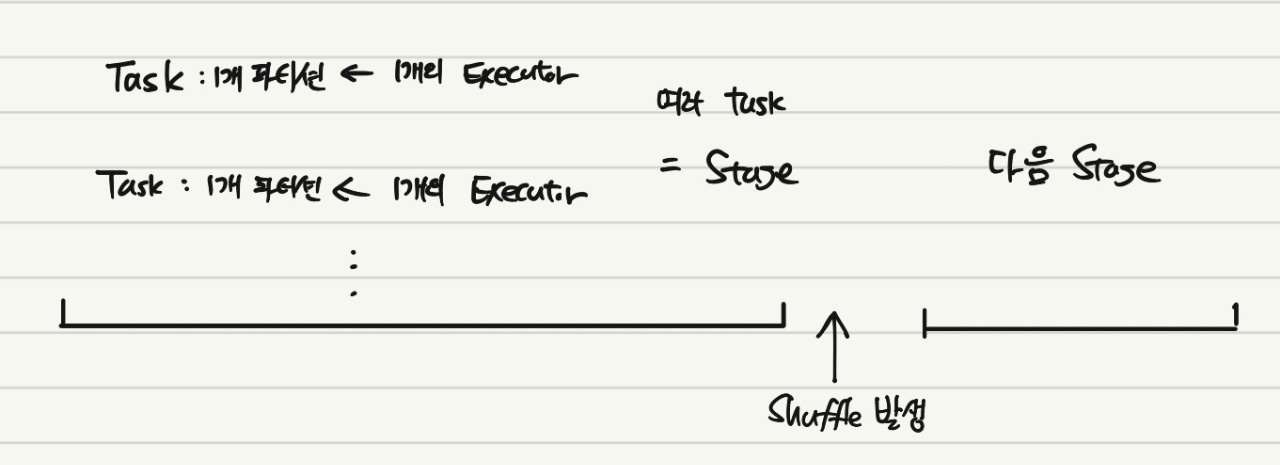 Task : 1개 파티션 ← 1개의 Executor
Task : 1개 파티션 ← 1개의 Executor
⋮
여러 task
= Stage
다음 Stage
Shuffle 발생